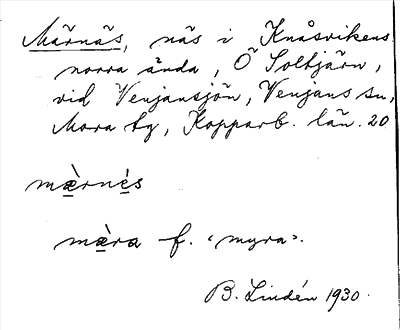 Märnäs, näs i Knåsvikens
norra ända, Ö Soltjärn,
vid Venjansjön, Venjans sn,
Mora tg, Kopparb. län. 20
mæ̀rnés
mæ̀ra f. ‹myra›.
B. Lindén 1930.